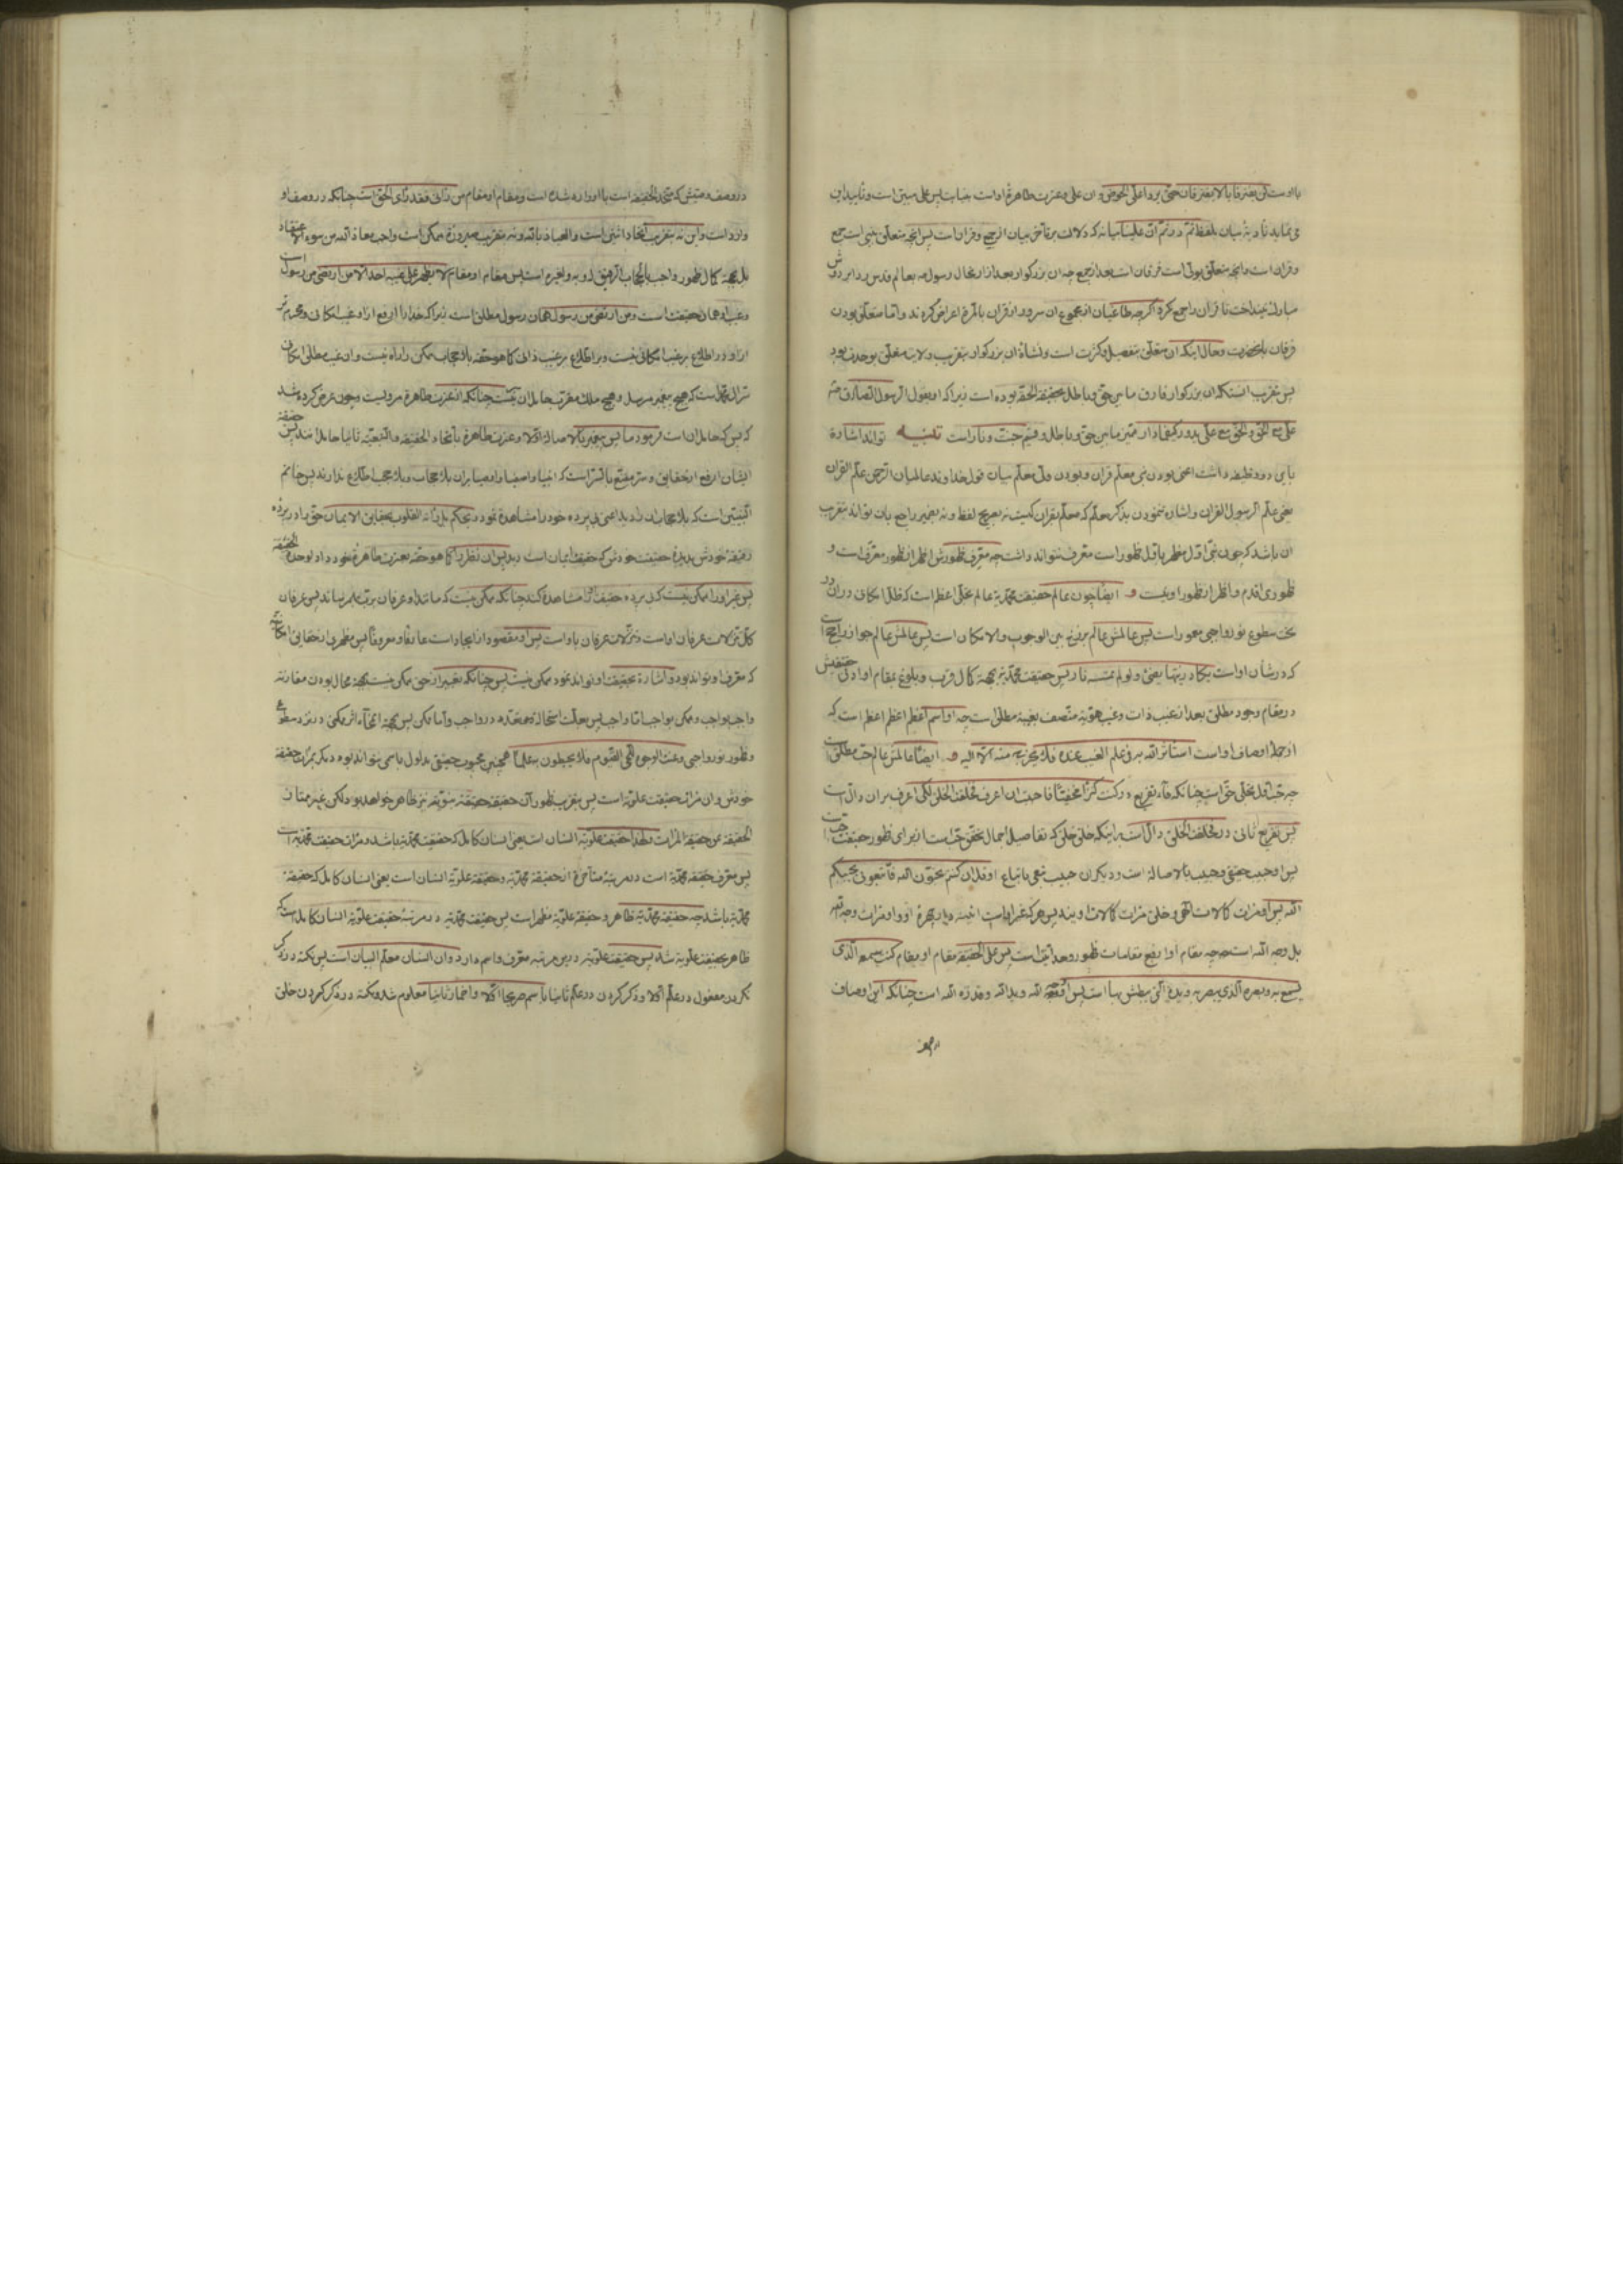 با اوست لن یفترقا یا لا یفترقان حتی یردا علی الحوض و ان علی و عترت طاهرۀ او است
می‌نماید بیان بلفظ ثم در ثم ان علینا بیانه که دلالت بر تأخر بیان از جمع و قران است پس آنچه متعلق بنبی است جمع
و قران است و آنچه متعلق بولی است فرقان است بعد از جمع چه ان بزرکوار بعد از ارتحال رسول بعالم قدس ردا بر دوش
مبارک نینداخت تا قران را جمع کرد اکرچه طاغیان از مجموع ان سر و از قران بالمره اعراض کردند و اما متعلق بودن
فرقان بانحضرت و حال اینکه ان متعلق بتفصیل و کثرت است و نشاۀ ان بزرکوار بتقریب ولایت متعلق بوحدت بود
پس بتقریب اینستکه ان بزرکوار فارق مابین حق و باطل بحقیقة الحقه بوده است زیرا که او بقول الرسول الصادق
علی مع الحق و الحق مع علی یدور کیفما دار ممیز مابین حق و باطل و قسیم جنت و نار است تنبیه تواند اشاره
باین دو وظیفه داشت اعنی بودن نبی معلم قران و بودن ولی معلم بیان قول خداوند عالمیان الرحمن علم القران
یعنی علم الرسول القران و اشاره ننمودن بذکر معلم که معلم بقران کیست نه بصریح لفظ و نه بضمیر راجع بان تواند بتقریب
ان باشد که چون نبی اول مظهر باول ظهور است معرف نتواند داشت چه معرف ظهورش اظهر از ظهور معرف است و
ظهوری اقدم و اظهر از ظهور او نیست و ایضا چون عالم حقیقت محمدیه عالم تجلی اعظم است که ظل امکانی در ان
تحت سطوع نور واجبی مقهور است پس عالمش عالم برزخ بین الوجوب و الامکان است پس عالمش عالم جواز راجح است
که در شان او است یکاد زیتها یضئ و لو لم تمسسه نار پس حقیقت محمدیه بجهة کمال قرب و بلوغ بمقام او ادنی حقیقتش
در مقام وجود مطلق بعد از غیب ذات و غیب هویة متصف بغیبیة مطلق است چه او اسم اعظم اعظم اعظم است که
از جملۀ اوصاف او است استأثر الله به فی علم الغیب عنده فلا یخرج منه الا الیه و ایضا عالمش عالم حب مطلق است
چه حب اول تجلی حق است چنانکه فاء تفریع در کنت کنزا مخفیا فاحببت ان اعرف فخلقت الخلق لکی اعرف بر ان دال است
پس تفریع ثانی در فخلقت الخلق دال است باینکه خلق خلق که تفاصیل اجمال تحقق حب است از برای ظهور حقیقت حب است
پس او حبیب حقیقی و حبیب بالاصاله است و دیکران حبیب تبعی باتباع او قل ان کنتم تحبون الله فاتبعونی یحببکم
الله پس او مرات کمالات الهی و خلق مرات کمالات اویند پس هر که او و او مرات وجه الله
بل وجه الله است چه مقام او ارفع مقامات ظهور وحدانیت است پس علی الحقیقه مقام او بمقام کنت سمعه الذی
یسمع به و بصره الذی یبصر به و یده التی یبطش بها است پس او الله و ید الله و قدرة الله است چنانکه این اوصاف
در وصف
در وصف وصیش که متحد الحقیقه است با او وارد شده است و مقام او مقام من رانی فقد رای الحق است چنانکه در وصف او
وارد است و این نه بتقریب اتحاد اثنین است و العیاذ بالله و نه بتقریب صیرورة ممکن است واجب معاذ الله من سوء الاعتقاد
بل بجهة کمال ظهور واجب پس مقام او مقام لا یظهر علی غیبه احدا الا من ارتضی من رسول است
و غیب او همان حقیقت است و من ارتضی من رسول همان رسول مطلق است زیرا که خدا را ارفع از او غیب امکانی و محرم تر
از او در اطلاع بر غیب امکانی نیست و بر اطلاع بر غیب ذاتی کما هو حقه بلا حجاب ممکن را راه نیست و ان غیب مطلق امکانی
است که هیچ پیغمبر مرسل و هیچ ملک مقرب حامل ان نیست چنانکه از عترت طاهره مرویست و چون عرض کرده شد
که پس که حامل ان است فرمود ما پس پیغمبر بالاصاله اولا و عترت طاهره باتحاد الحقیقه و التبعیة ثانیا حامل انند پس حقیقة
ایشان ارفع از حقایق و سر مقنع بالسر است که انبیا و اصفیا و اوصیا بر ان بلا حجاب و بلا حجب اطلاع ندارند پس خاتم
النبیین است که بلا حجاب ان را دید اعنی بی پرده خود را مشاهده نمود بحکم بل راته القلوب بحقایق الایمان حق را در پرده
رقیقۀ خودش بدیدۀ حقیقت خودش که حقیقت ایمان است دید پس ان نظر را کما هو حقه بعترت طاهرۀ خود داد لوحدة الحقیقة
پس غیر او را ممکن نیست که بی پرده حقیقت او را مشاهده کند چنانکه ممکن نیست که مانند او عرفان برب بهم رساند پس عرفان
کل تنزلات عرفان او است و تنزلات عرفان باو است پس او مقصود از ایجاد است عارفا و معروفا پس مظهری از حقایق امکانیه
که معرف او تواند بود و اشاره بحقیقت او تواند نمود ممکن نیست پس چنانکه تعبیر از حق ممکن نیست بجهة محال بودن مقارنه
واجب و ممکن
و ظهور نور واجبی و عنت الوجوه للحی القیوم فلا یحیطون به علما همچنین محبوب حقیقی مدلول باسمی نتواند بود دیکر مرات حقیقة
خودش و ان مرات حقیقت علویه است پس بتقریب ظهور ان حقیقة حقیقة نیز ظاهر خواهد بود لکن غیر ممتاز
الحقیقه عن حقیقة المرات و لهذا حقیقت علویه انسان است یعنی انسان کامل که حقیقت محمدیه باشد و مرات حقیقت محمدیه است
پس معرف حقیقه محمدیة است در مرتبۀ متأخره از حقیقة محمدیه و حقیقة علویة انسان است یعنی انسان کامل که حقیقة
محمدیه باشد چه حقیقة محمدیه ظاهر و حقیقة علویة مظهر است پس حقیقت محمدیه در مرتبۀ حقیقت علویة انسان کامل است که
ظاهر بحقیقت علویه شد پس حقیقت علویه در این مرتبه معرف و اسم دارد و ان انسان معلم البیان است پس نکته در ذکر
نکردن مفعول در علم اولا و ذکر کردن در علم ثانیا باسم صریحا اولا و اضمار ثانیا معلوم شد و نکته در ذکر کردن خلق